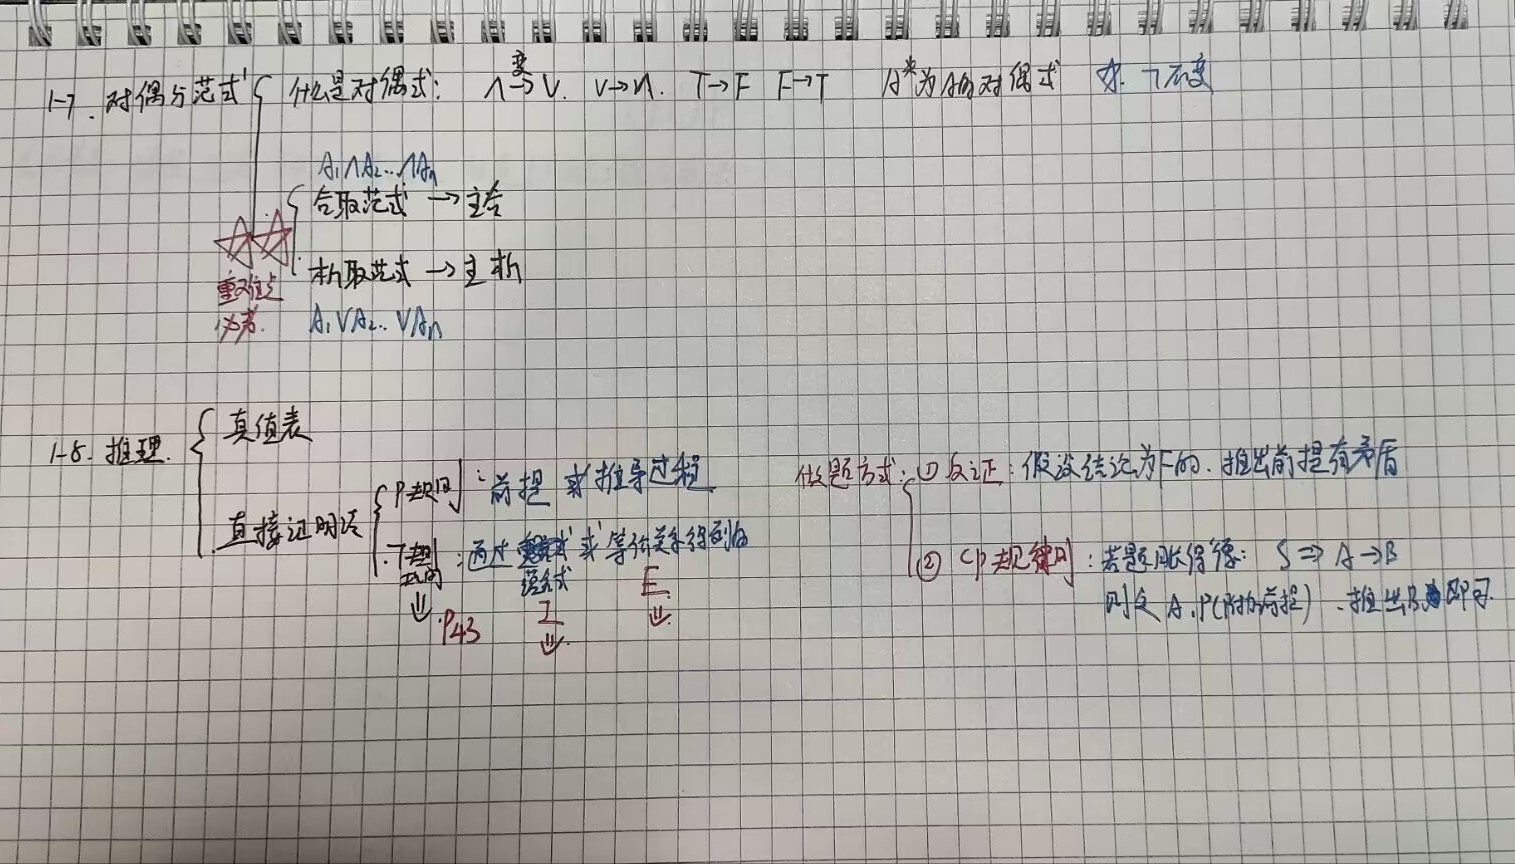 1-7. 对偶与范式 { 什么是对偶式: ∧→∨. ∨→∧. T→F F→T A*为A的对偶式 ¬不变
变
A₁∧A₂…∧Aₙ
合取范式 → 主合
析取范式 → 主析
重难点
必考.
A₁∨A₂…∨Aₙ
1-8. 推理. {
真值表
直接证明法 {
P规则: 前提 或推导过程
T规则: 通过 或等价关系得到的
蕴含式
P43
I
E
做题方式: ① 反证: 假设结论为F的. 推出前提有矛盾
② CP规则: 若题 S ⇒ A → B
则令 A.P(附加前提). 推出B即可.